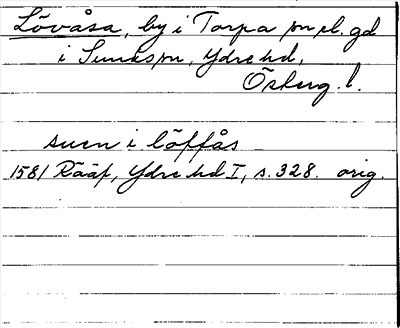 Lövåsa, by i Torpa sn el. gd
i Sunds sn, Ydre hd,
Österg. l.
suen i löffås
1581 Rääf, Ydre hd I, s. 328. orig.